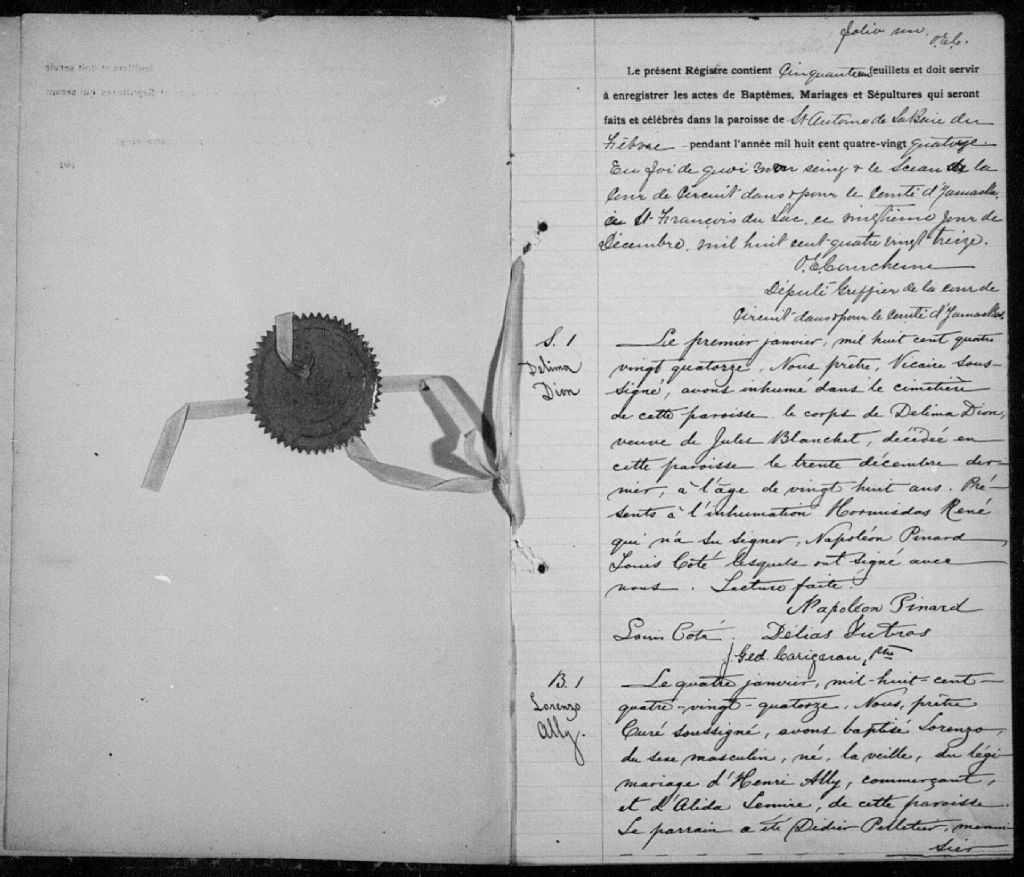 folio un. O.E.C.
Le présent Régistre contient Cinquante un feuillets et doit servir
à enregistrer les actes de Baptêmes, Mariages et Sépultures qui seront
faits et célébrés dans la paroisse de St Antoine de La Baie du
Fèbvre pendant l'année mil huit cent quatre-vingt quatorze
En foi de quoi mon seing & le Sceau de la
Cour de Circuit dans & pour le Comté d'Yamaska,
à St François du Lac, ce vingtième jour de
Décembre, mil huit cent quatre vingt treize.
Député Greffier de la cour de
Circuit dans & pour le Comté d'Yamaska.
S. 1
Delima
Dion
Le premier janvier, mil huit cent quatre
vingt quatorze, Nous prêtre, Vicaire sous-
signé, avons inhumé dans le cimetière
de cette paroisse le corps de Delima Dion,
veuve de Jules Blanchet, décédée en
cette paroisse le trente décembre der-
nier, à l'âge de vingt huit ans. Pré-
sents à l'inhumation Hormisdas René
qui n'a su signer, Napoléon Pinard,
Louis Coté lesquels ont signé avec
nous. Lecture faite.
Napoléon Pinard
Louis Coté. Délias Jutras
J. Ged. Carignan, ptre
B. 1
Lorenzo
Ally.
Le quatre janvier, mil-huit-cent-
quatre-vingt-quatorze, Nous, prêtre
Curé soussigné, avons baptisé Lorenzo,
du sexe masculin, né, la veille, du légi
mariage d'Henri Ally, commerçant,
et d'Alida Lemire, de cette paroisse.
Le parrain a été Didier Pelletier, menui
sier